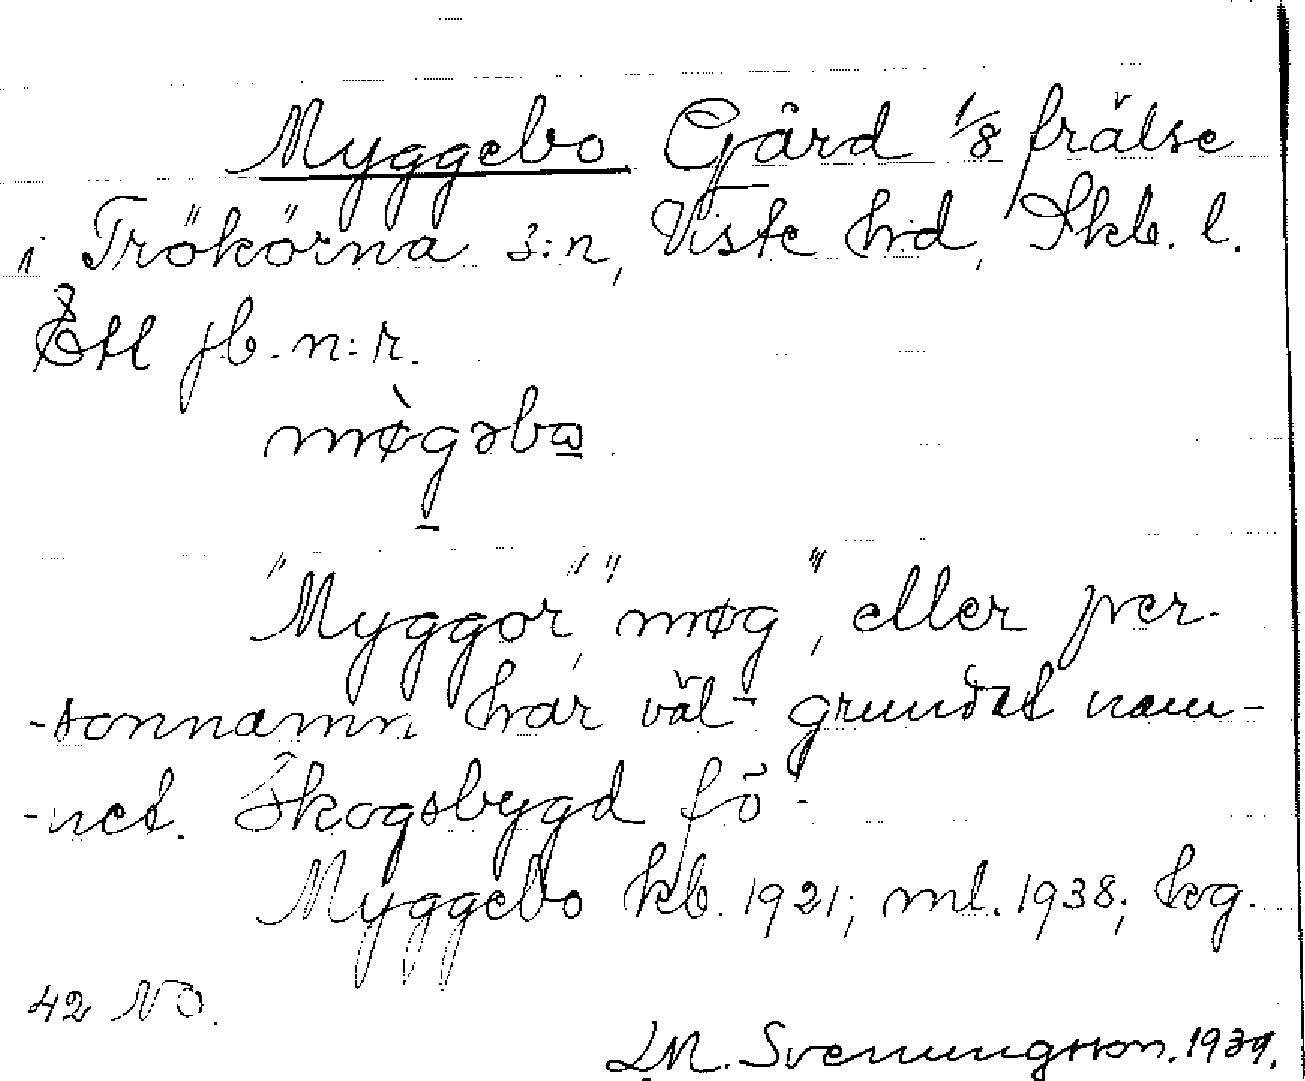 Myggebo Gård 1/8 frälse
i Trökörna s:n, Viste hrd, Skb. l.
Ett jb. n:r.
mø̀gəbω.
"Myggor", "møg", eller per-
-sonnamn har väl grundat nam-
-net. Skogsbygd
Myggebo kb. 1921; ml. 1938; kg.
42 NO.
L.M. Svenungsson. 1939.